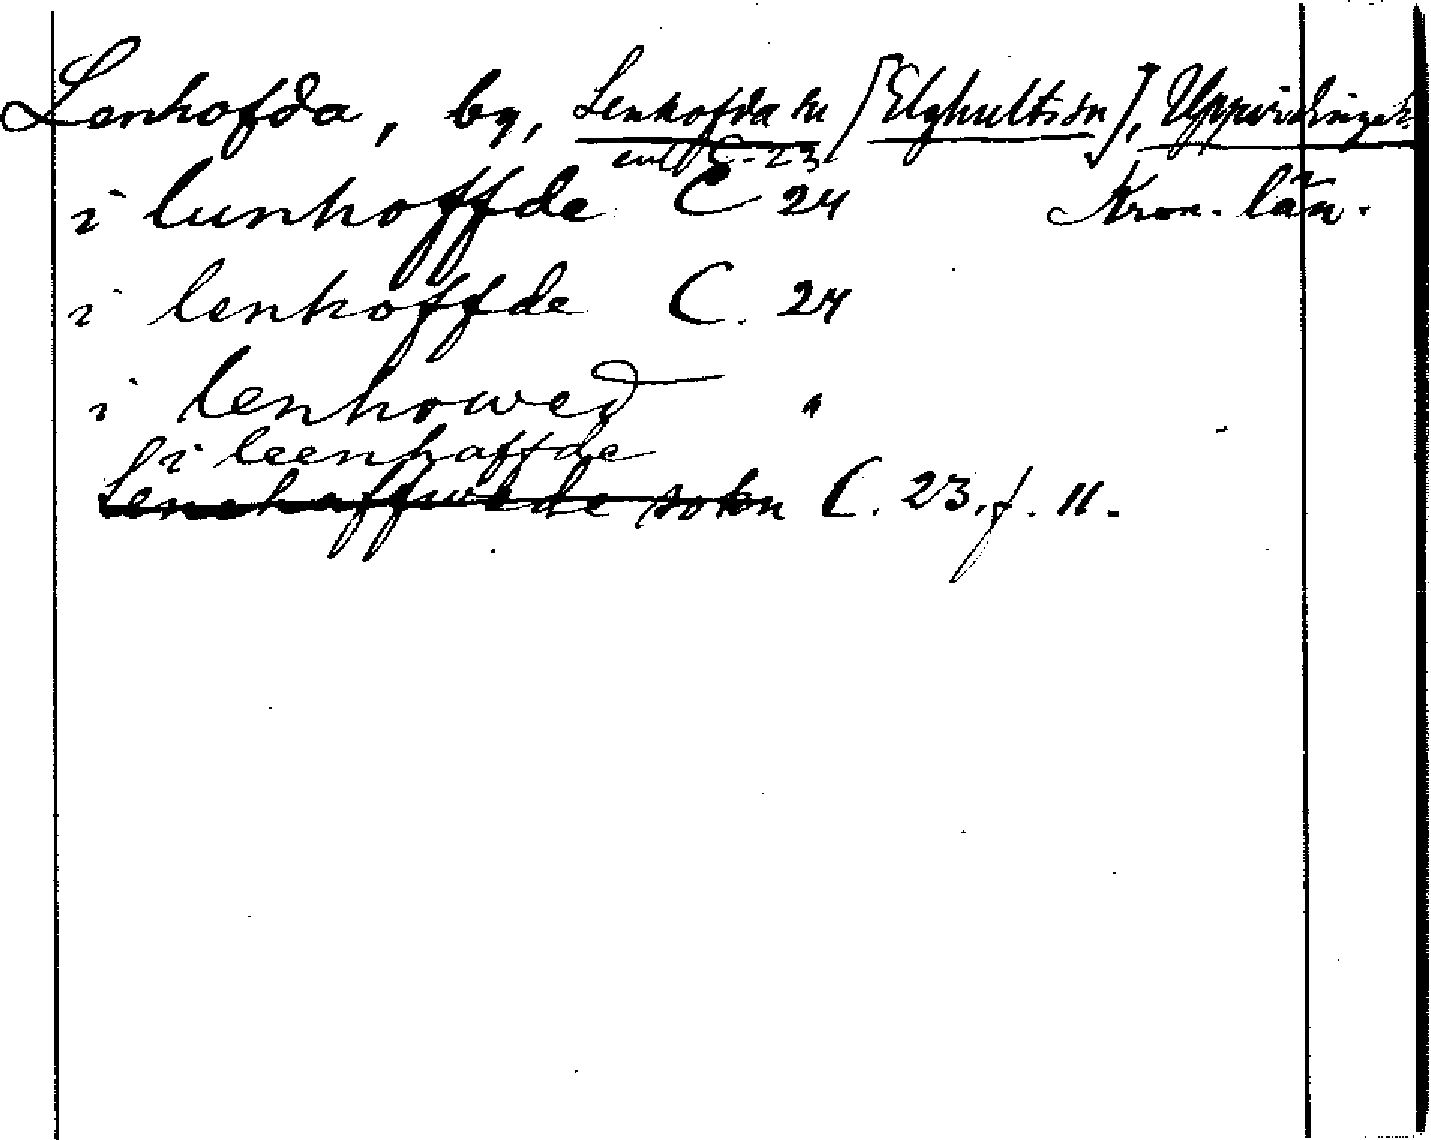 Lenhofda, by, Lenhofda sn [Elghults sn], Uppvidinge h.
enl C. 23.
i lunhoffde C 24 Kron. län.
i lenhoffde C. 24
i lenhowed "
i leenhaffde
Lenehaffwede sokn C. 23. f. 11.